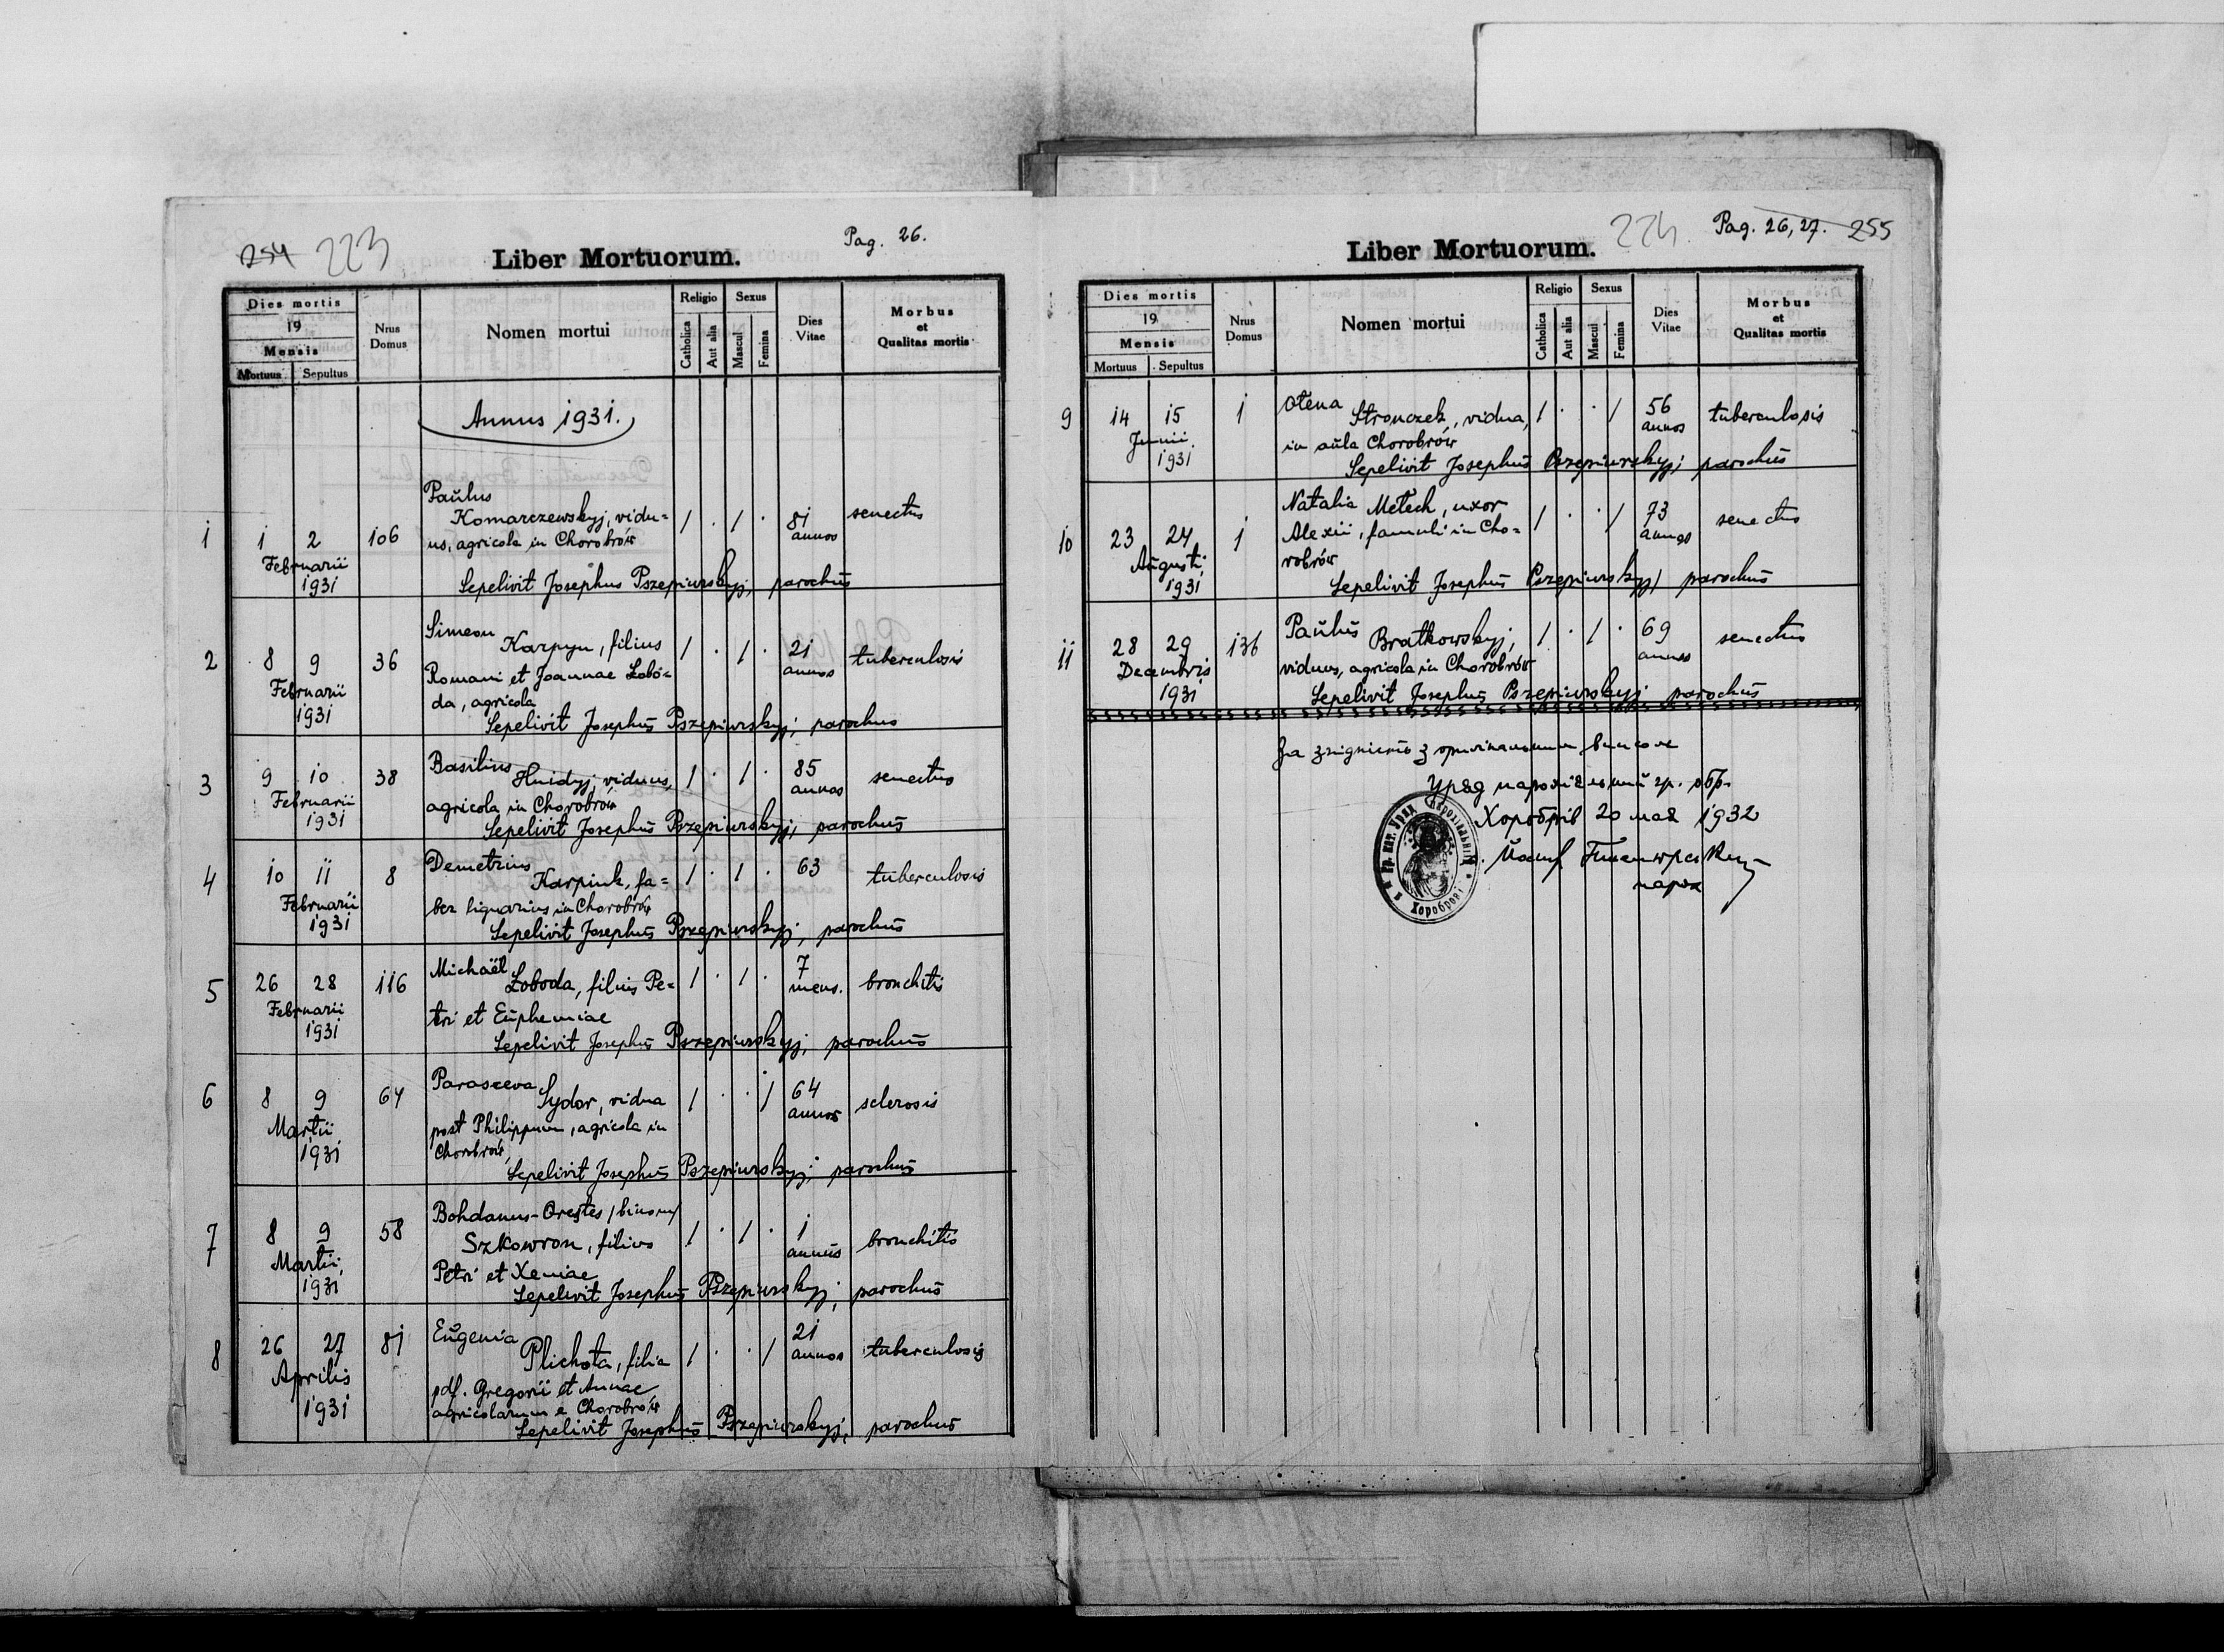 254 223
Pag. 26.
Liber Mortuorum.
Dies mortis
19
Mensis
Mortuus Sepultus
Nrus Domus
Nomen mortui
Religio
Catholica Aut alia
Sexus
Mascul Femina
Dies Vitae
Morbus et Qualitas mortis
Annus 1931.
Paulus
1 1 2 106 Komarczewskyj, vidu= 1 . 1 . 81 senectus
us, agricola in Chorobrów annos
Februarii
1931 Sepelivit Josephus Pszepiurskyj, parochus
Simeon
2 8 9 36 Karpyn, filius 1 . 1 . 21 tuberculosis
Romani et Joannae Łobo= annos
Februarii da, agricola
1931 Sepelivit Josephus Pszepiurskyj, parochus
Basilius
3 9 10 38 Hnidyj, viduus, 1 . 1 . 85 senectus
Februarii agricola in Chorobrów annos
1931 Sepelivit Josephus Pszepiurskyj, parochus
Demetrius
4 10 11 8 Karpiuk, fa= 1 . 1 . 63 tuberculosis
Februarii ber lignarius in Chorobrów
1931 Sepelivit Josephus Pszepiurskyj, parochus
Michaël
5 26 28 116 Łoboda, filius Pe= 1 . 1 . 7 bronchitis
Februarii tri et Euphemiae mens.
1931 Sepelivit Josephus Pszepiurskyj, parochus
Parasceva
6 8 9 64 Sydor, vidua 1 . . 1 64 sclerosis
Martii post Philippum, agricola in annos
1931 Chorobrów,
Sepelivit Josephus Pszepiurskyj, parochus
Bohdanus-Orestes /binom/
7 8 9 58 Szkowron, filius 1 . 1 . 1 bronchitis
Martii, Petri et Xeniae annus
1931 Sepelivit Josephus Pszepiurskyj, parochus
Eugenia
8 26 27 81 Plichota, filia 1 . . 1 21 tuberculosis
Aprilis pdf. Gregorii et Annae annos
1931 agricolarum e Chorobrów
Sepelivit Josephus Pszepiurskyj, parochus
224 Pag. 26, 27. 255
Liber Mortuorum.
Dies mortis
19
Mensis
Mortuus Sepultus
Nrus Domus
Nomen mortui
Religio
Catholica Aut alia
Sexus
Mascul Femina
Dies Vitae
Morbus et Qualitas mortis
9 14 15 1 Stronczek, vidua, 1 . . 1 56 tuberculosis
Junii. in aula Chorobrów annos
1931 Sepelivit Josephus Pszepiurskyj, parochus
Natalia Metech, uxor
10 23 24 1 Alexii, famuli in Cho= 1 . . 1 73 senectus
Augusti robrów annos
1931 Sepelivit Josephus Pszepiurskyj, parochus
Paulus
11 28 29 136 Bratkowskyj, 1 . 1 . 69 senectus
Decembris viduus, agricola in Chorobrów annos
1931 Sepelivit Josephus Pszepiurskyj parochus
За згідність з оригінальним
Уряд парохіяльний гр. обр.
Хоробрів 20 мая 1932
парох
Гр. кат. Уряд Парохіяльний в Хороброві